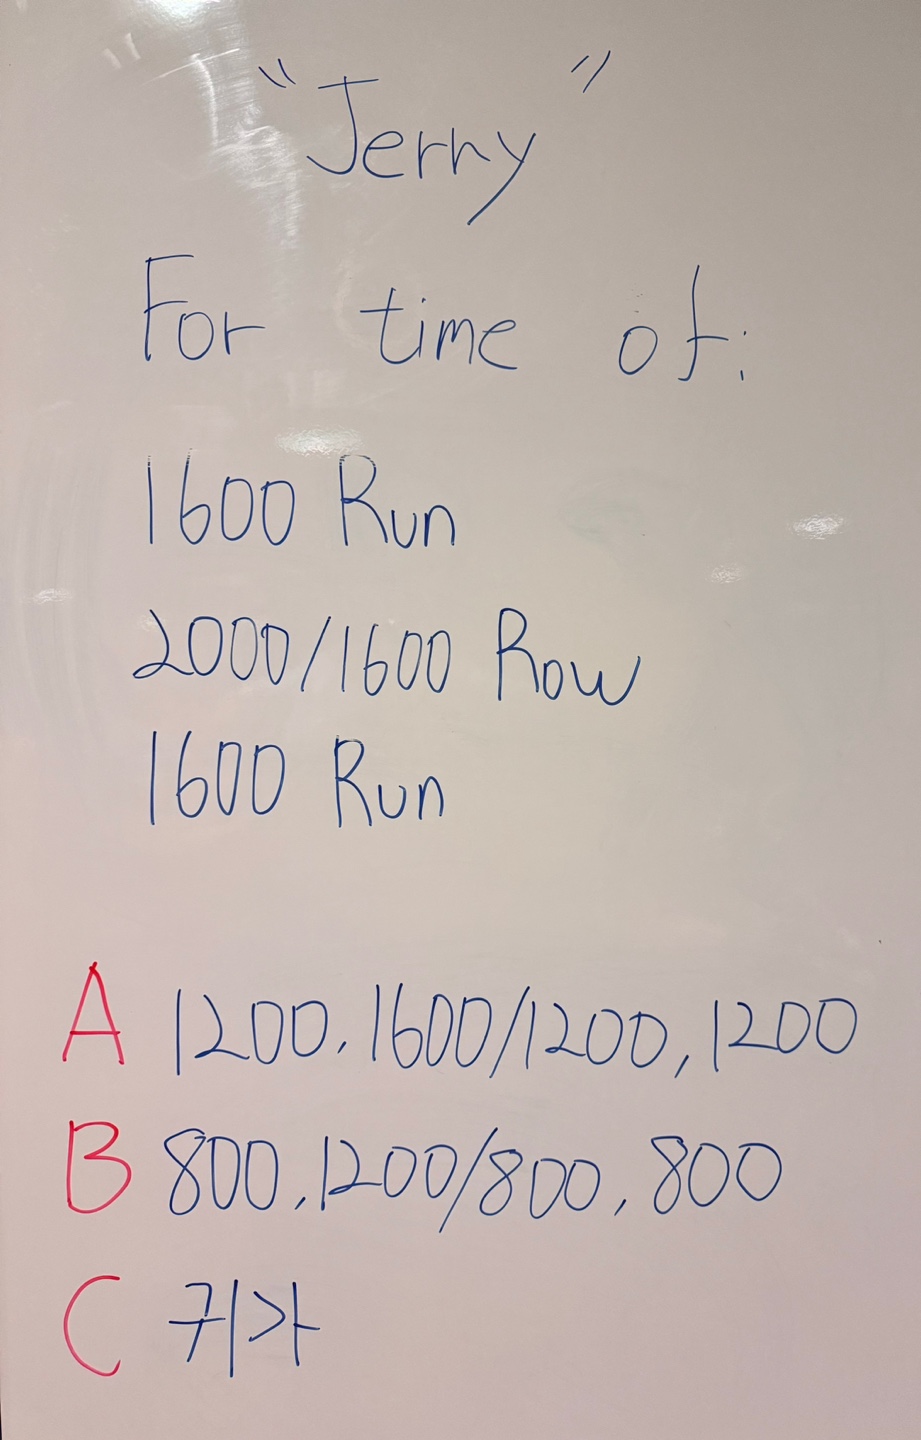 "Jerry"
For time of:
1600 Run
2000/1600 Row
1600 Run
A 1200, 1600/1200, 1200
B 800, 1200/800, 800
C 귀가